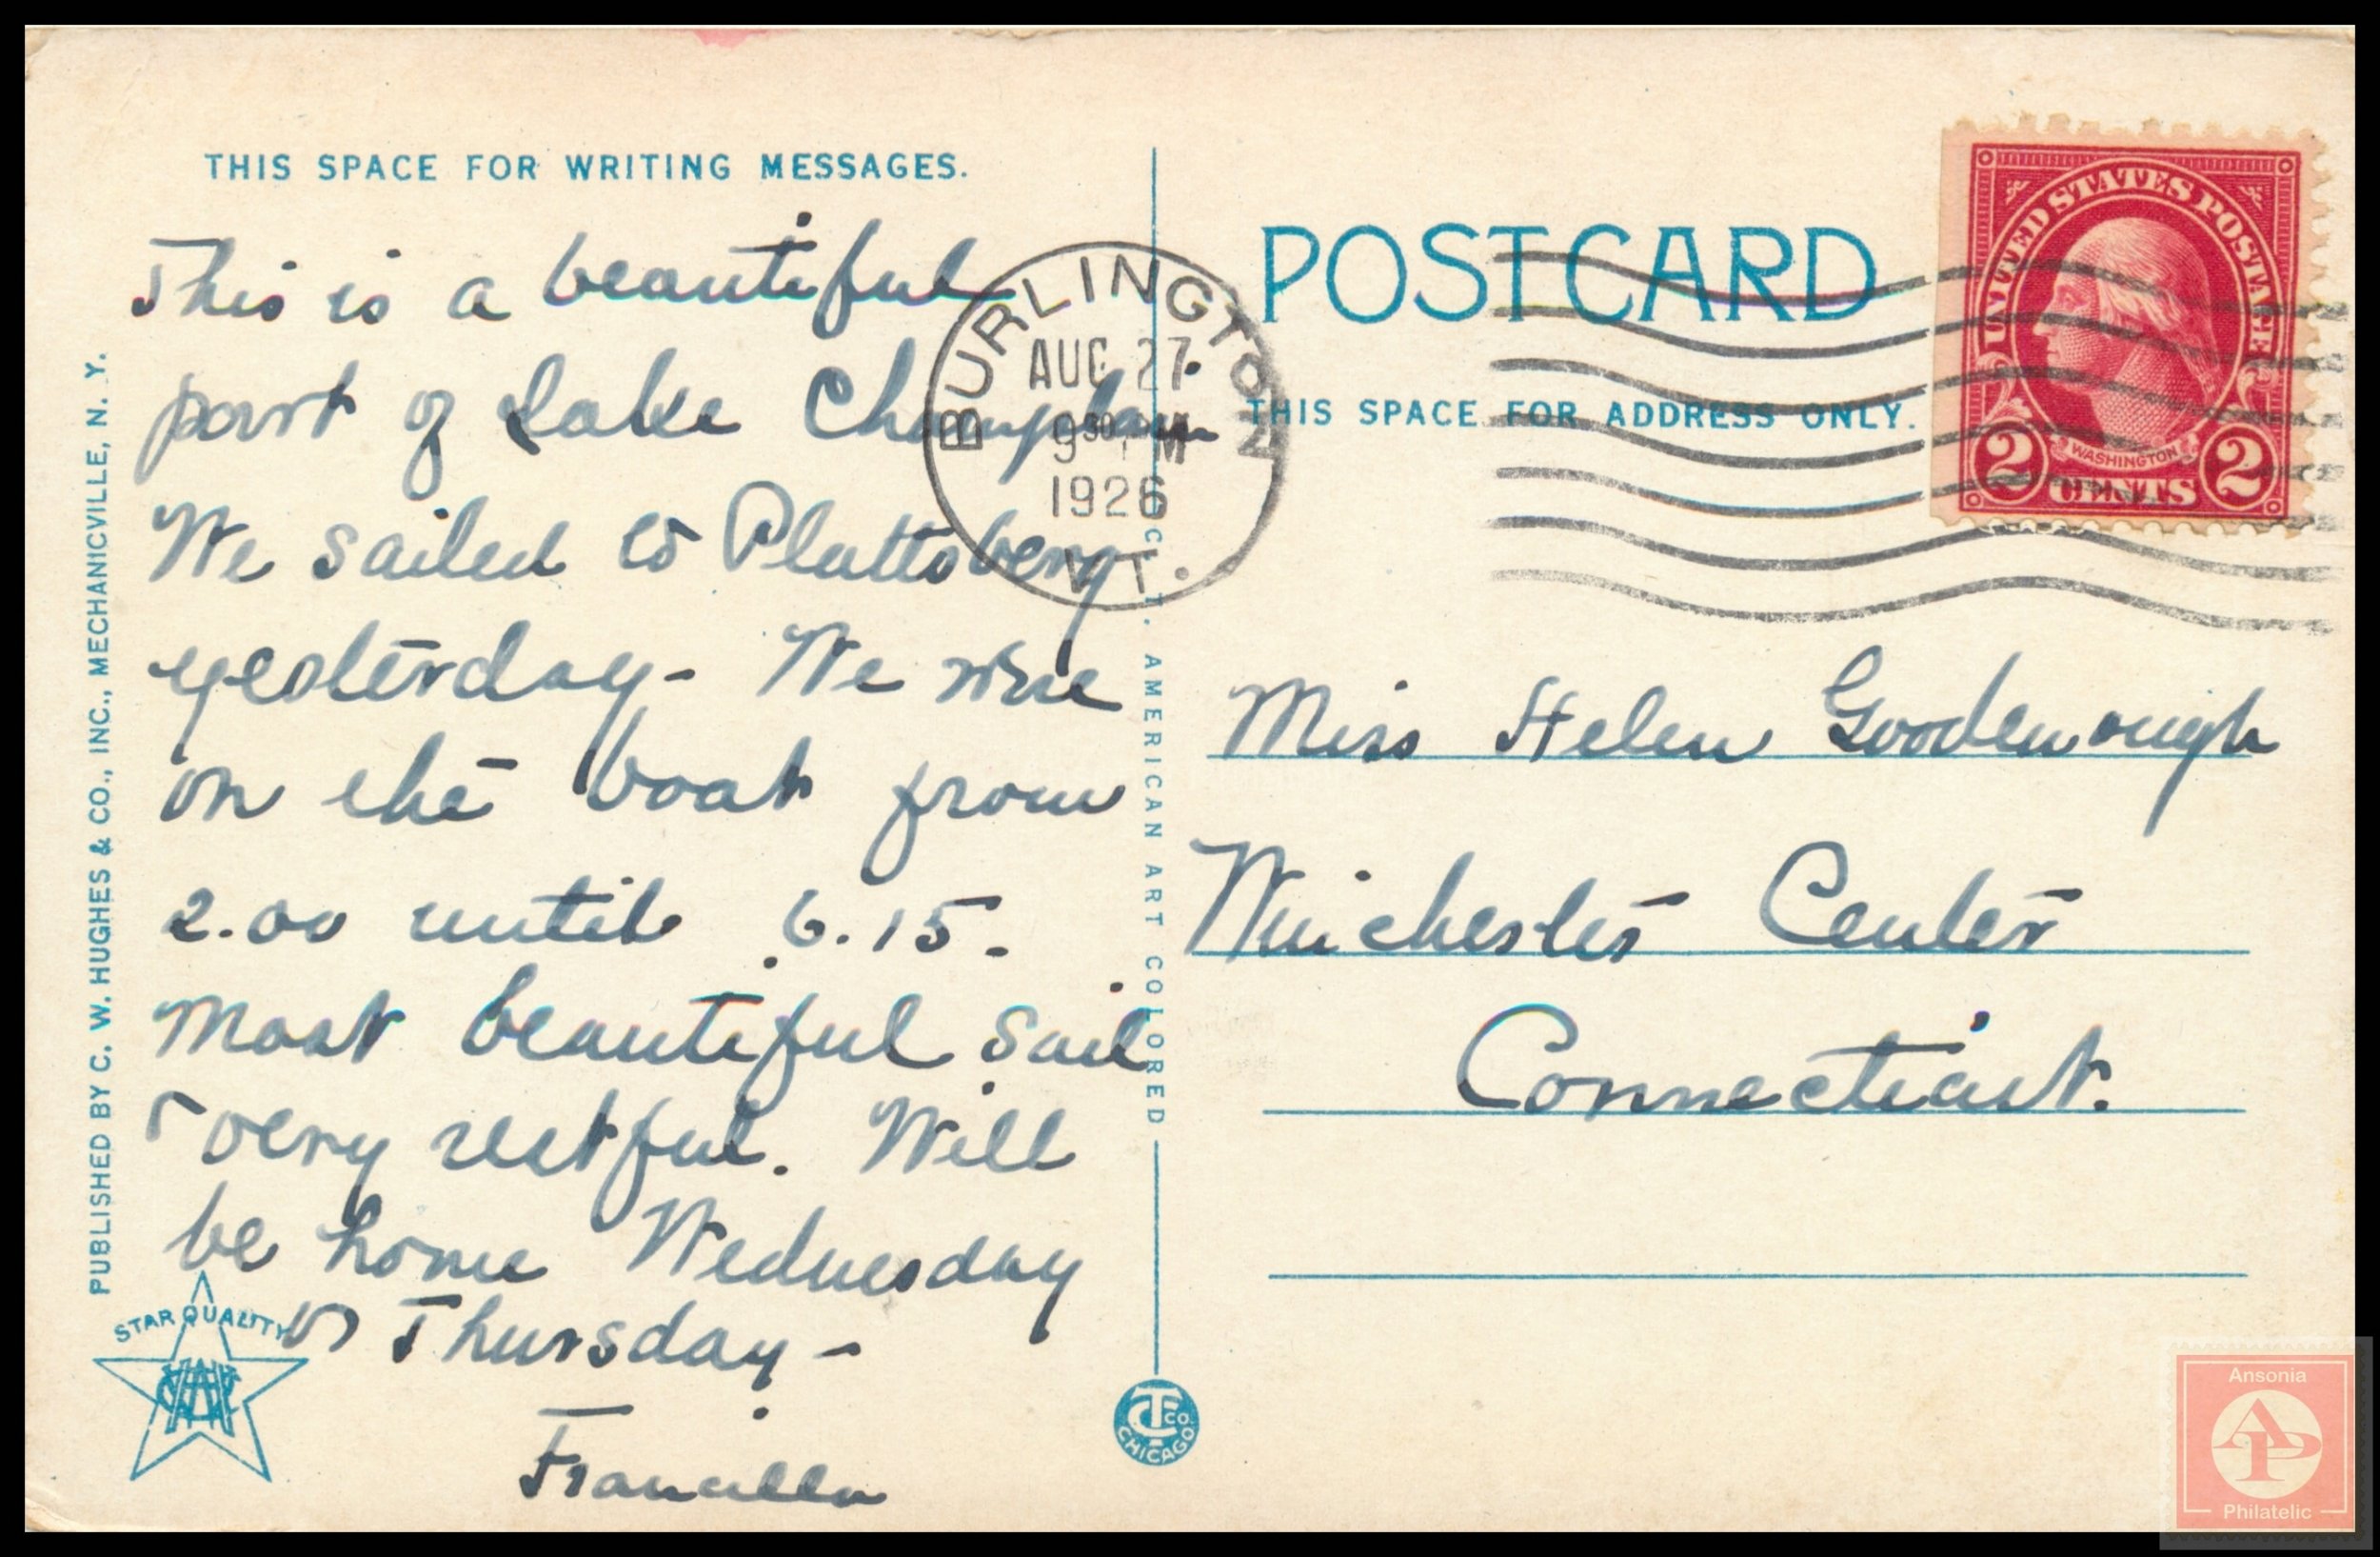 THIS SPACE FOR WRITING MESSAGES.
This is a beautiful
part of Lake Champlain
We sailed to Plattsberg
yesterday - We were
on the boat from
2.00 until 6.15.
Most beautiful sail
& very restful. Will
be home Wednesday
or Thursday -
Francilla
PUBLISHED BY C. W. HUGHES & CO., INC., MECHANICVILLE, N. Y.
STAR QUALITY
C. T. AMERICAN ART COLORED
C.T. CO. CHICAGO
BURLINGTON
AUG 27
9 30 PM
1926
VT.
POSTCARD
THIS SPACE FOR ADDRESS ONLY.
UNITED STATES POSTAGE
WASHINGTON
2 CENTS 2
Miss Helen Goodenough
Winchester Center
Connecticut.
Ansonia
AP
Philatelic